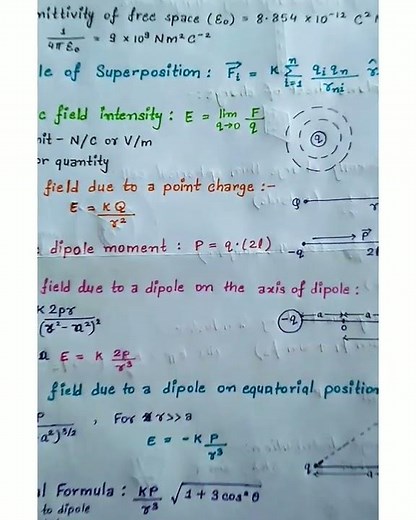 mittivity of free space (ε₀) = 8.854 × 10⁻¹² C²
1/4πε₀ = 9 × 10⁹ Nm² C⁻²
le of Superposition : F⃗ᵢ = K Σⁿᵢ₌₁ qᵢ qₙ / rₙᵢ r̂
c field intensity : E = lim q→0 F/q
q
nit - N/C or V/m
or quantity
field due to a point charge :-
E = KQ/r²
Q r
: dipole moment : P = q·(2l)
P⃗
-q 2l
field due to a dipole on the axis of dipole :
K 2pr/(r²-a²)²
-q a a
O
E = K 2p/r³
field due to a dipole on equatorial position
P/a²)³/² , For r>>a
E = -K P/r³
q a
al Formula : KP/r³ √1 + 3cos²θ
to dipole